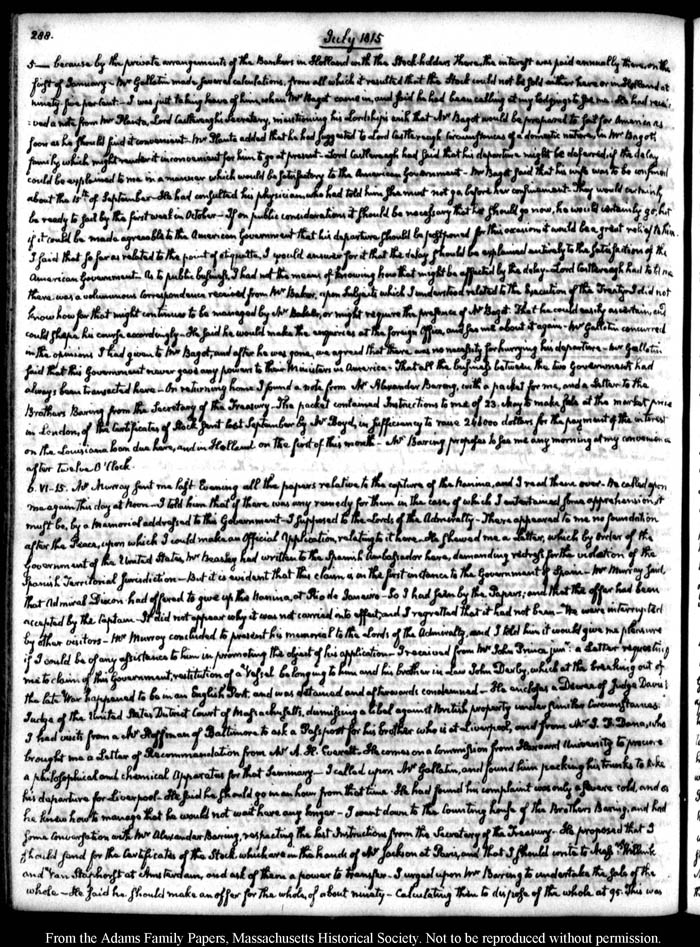 288.
July 1815
5 — because by the private arrangements of the Bankers in Holland with the Stock holders there, the interest was paid annually there, on the
first of January — Mr Gallatin made several calculations, from all which it resulted that the Stock could not be sold either here or in Holland at
ninety-five per cent — I was just taking leave of him, when Mr Bagot came in, and said he had been calling at my lodgings to see me. He had recei-
:ved a note from Mr Planta, Lord Castlereagh's Secretary, mentioning his Lordship's wish that Mr Bagot would be prepared to sail for America as
soon as he should find it convenient — Mr Planta added that he had suggested to Lord Castlereagh circumstances of a domestic nature, in Mr Bagot's
family which might render it inconvenient for him to go at present — Lord Castlereagh had said that his departure might be deferred, if the delay
could be explained to me in a manner which would be satisfactory to the American Government — Mr Bagot said that his wife was to be confined
about the 15th of September — He had consulted his physician who had told him she must not go before her confinement — They would certainly
be ready to sail by the first week in October — If on public considerations it should be necessary that he should go now, he would certainly go, but
if it could be made agreeable to the American Government that his departure should be postponed for this occasion it would be a great relief to him.
I said that so far as related to the point of etiquette, I would answer for it that the delay should be explained entirely to the satisfaction of the
American Government. As to public business, I had not the means of knowing how that might be affected by the delay — Lord Castlereagh had told me
there was a voluminous correspondence received from Mr Baker, upon subjects which I understood related to the execution of the Treaty. I did not
know how far that might continue to be managed by Mr Baker, or might require the presence of Mr Bagot. That he could easily ascertain, and
could shape his course accordingly — He said he would make the enquiries at the foreign Office, and see me about it again — Mr Gallatin concurred
in the opinions I had given to Mr Bagot, and after he was gone, we agreed that there was no necessity for hurrying his departure — Mr Gallatin
said that this Government never gave any powers to their Ministers in America — That all the business between the two Governments had
always been transacted here — On returning home I found a note from Mr Alexander Baring, with a packet for me, and a Letter to the
Brothers Baring from the Secretary of the Treasury — The packet contained Instructions to me of 23. May to make sale at the market price
in London, of the Certificates of Stock sent last September by Mr Boyd, in sufficiency to raise 241000 dollars for the payment of the interest
on the Louisiana loan due here, and in Holland on the first of this month — Mr Baring proposes to see me any morning at my convenience
after twelve O'Clock.
6. VI-15. Mr Murray sent me last Evening all the papers relative to the capture of the Nanina, and I read them over — He called upon
me again this day at Noon — I told him that if there was any remedy for them in the case, of which I entertained some apprehension, it
must be, by a Memorial addressed to this Government — I supposed to the Lords of the Admiralty — There appeared to me no foundation
after the Peace, upon which I could make an Official Application, relating to it here. He shewed me a Letter, which by order of the
Government of the United States, Mr Beasley had written to the Spanish Ambassador here, demanding redress for the violation of the
Spanish Territorial Jurisdiction — But it is evident that this claim is in the first instance to the Government of Spain — Mr Murray said,
that Admiral Dixon had offered to give up the Nanina, at Rio de Janeiro — So I had seen by the Papers; and that the offer had been
accepted by the Captain — It did not appear why it was not carried into effect; and I regretted that it had not been — We were interrupted
by other visitors — Mr Murray concluded to present his memorial to the Lords of the Admiralty, and I told him it would give me pleasure
if I could be of any assistance to him in promoting the object of his application — I received from Mr John Prince junr: a Letter requesting
me to claim of this Government, restitution of a Vessel belonging to him and his brother in Law John Derby, which at the breaking out of
the late War happened to be in an English Port, and was detained and afterwards condemned — He encloses a Decree of Judge Davis
Judge of the United States District Court of Massachusetts, dismissing a libel against British property under similar Circumstances.
I had visits from a Mr Hoffman of Baltimore to ask a Passport for his brother who is at Liverpool, and from Mr J. F. Dana, who
brought me a Letter of Recommendation from Mr A. H. Everett. He comes on a Commission from Harvard University to procure
a philosophical and chemical Apparatus for that Seminary — I called upon Mr Gallatin, and found him packing his trunks to take
his departure for Liverpool — He said he should go in an hour from that time. He had found his complaint was only a severe cold, and as
he knew how to manage that he would not wait here any longer — I went down to the Counting house of the Brothers Baring, and had
some conversation with Mr Alexander Baring, respecting the last Instructions from the Secretary of the Treasury. He proposed that I
should send for the Certificates of the Stock, which are in the hands of Mr Jackson at Paris, and that I should write to Messrs Willink
and Van Staphorst at Amsterdam, and ask of them a power to transfer — I urged upon Mr Baring to undertake the sale of the
whole — He said he should make an offer for the whole, of about ninety — Calculating then to dispose of the whole at 95. This was
From the Adams Family Papers, Massachusetts Historical Society. Not to be reproduced without permission.